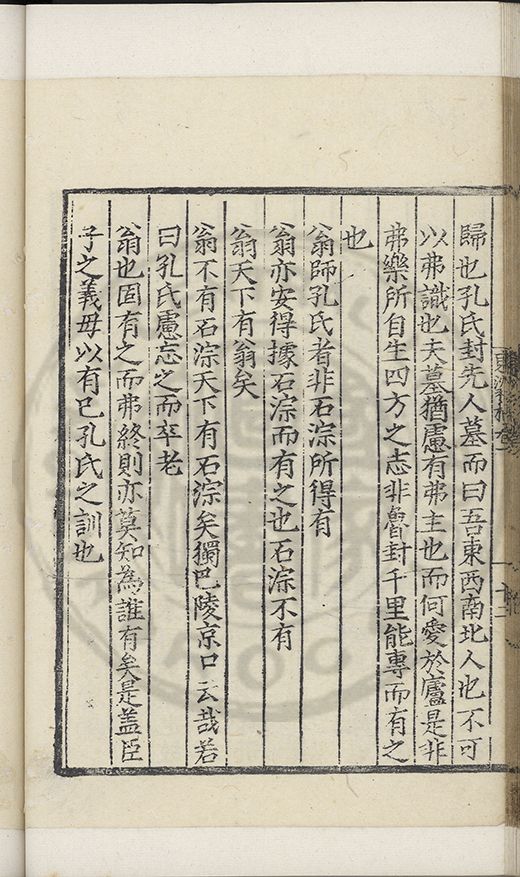 歸也孔氏封先人墓而曰吾東西南北人也不可
以弗識也夫墓猶慮有弗主也而何愛於廬是非
弗樂所自生四方之志非魯封千里能專而有之
也
翁師孔氏者非石淙所得有
翁亦安得據石淙而有之也石淙不有
翁天下有翁矣
翁不有石淙天下有石淙矣獨巴陵京口云哉若
曰孔氏慮忘之而卒老
翁也固有之而弗終則亦莫知為誰有矣是盖臣
子之義毋以有已孔氏之訓也